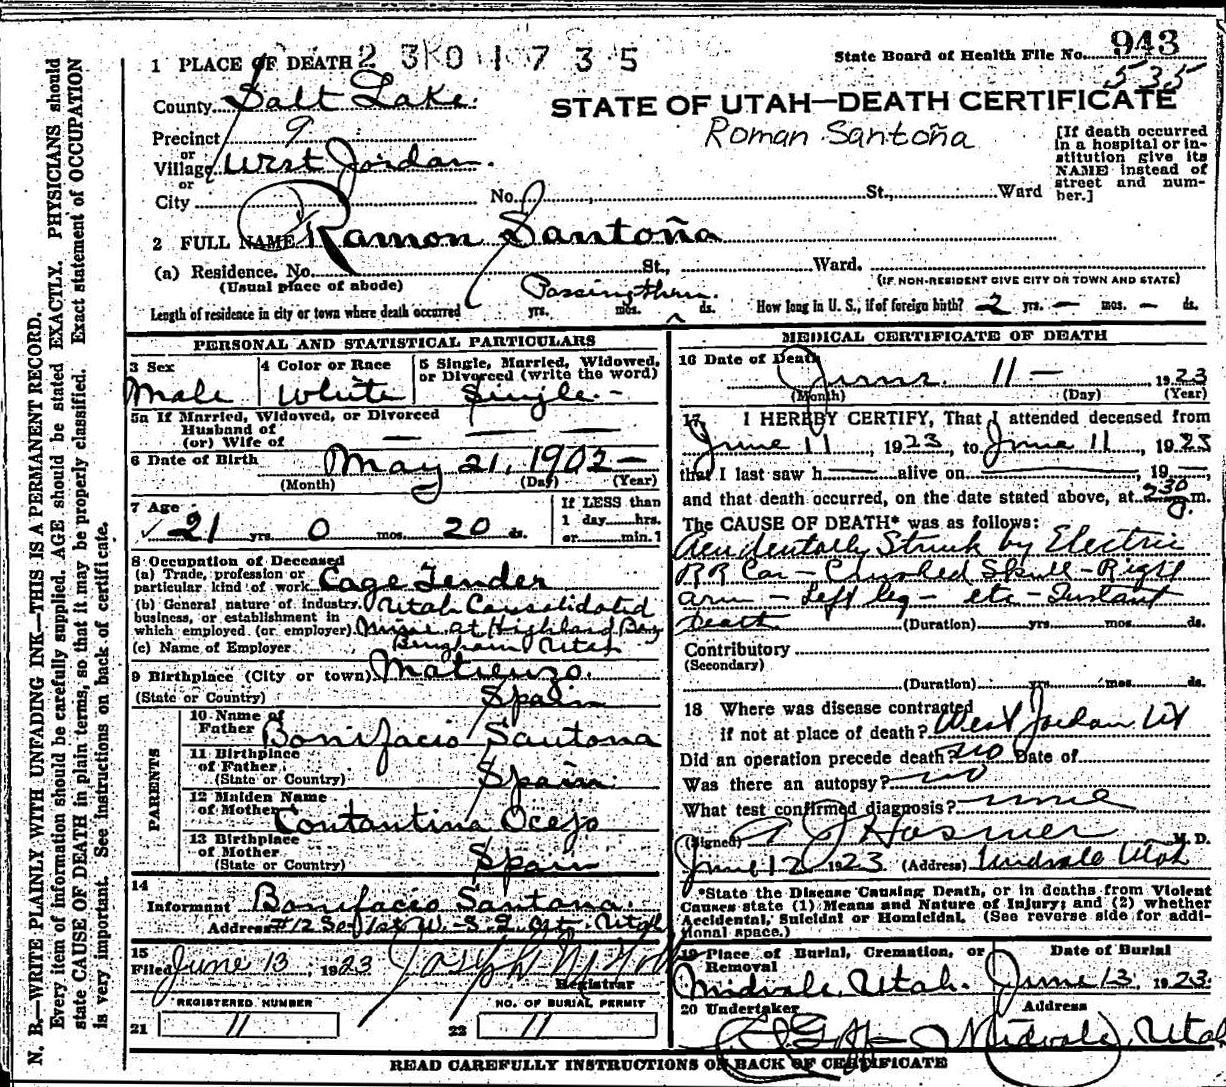 1 PLACE OF DEATH 2 3 0 1 7 3 5
State Board of Health File No. 943
535
County Salt Lake.
STATE OF UTAH—DEATH CERTIFICATE
Precinct 9
Roman Santoña
[If death occurred in a hospital or institution give its NAME instead of street and number.]
or
Village West Jordan.
or
City No. St., Ward
2 FULL NAME Ramon Santoña
(a) Residence. No. St., Ward.
(Usual place of abode) (IF NON-RESIDENT GIVE CITY OR TOWN AND STATE)
Passing thru.
Length of residence in city or town where death occurred yrs. mos. ds. How long in U. S., if of foreign birth? 2 yrs. — mos. — ds.
PERSONAL AND STATISTICAL PARTICULARS
3 Sex Male
4 Color or Race White
5 Single, Married, Widowed, or Divorced (write the word) Single -
5a If Married, Widowed, or Divorced
Husband of
(or) Wife of — — —
6 Date of Birth May 21, 1902 —
(Month) (Day) (Year)
7 Age 21 yrs. 0 mos. 20 ds.
If LESS than 1 day hrs. or min.?
8 Occupation of Deceased
(a) Trade, profession or particular kind of work Cage Tender
(b) General nature of industry, business, or establishment in which employed (or employer) Utah Consolidated
Mine at Highland Boy
(c) Name of Employer Bingham Utah
9 Birthplace (City or town) Matienzo.
(State or Country) Spain
PARENTS
10 Name of Father Bonifacio Santona
11 Birthplace of Father (State or Country) Spain
12 Maiden Name of Mother Contantina Ocejo
13 Birthplace of Mother (State or Country) Spain
14
Informant Bonifacio Santona.
Address #12 So 1st W. - S. L. Utah
15
Filed June 13, 1923 Joseph
Registrar
REGISTERED NUMBER NO. OF BURIAL PERMIT
21 11 22 11
MEDICAL CERTIFICATE OF DEATH
16 Date of Death June 11 — 1923
(Month) (Day) (Year)
17 I HEREBY CERTIFY, That I attended deceased from
June 11, 1923, to June 11, 1923
that I last saw h alive on , 19 ,
and that death occurred, on the date stated above, at 2 30 m.
The CAUSE OF DEATH* was as follows:
Accidentally Struck by Electric
RR Car - Crushed Skull - Right
arm - Left leg - etc - Instant
Death (Duration) yrs. mos. ds.
Contributory
(Secondary)
(Duration) yrs. mos. ds.
18 Where was disease contracted
if not at place of death? West Jordan Ut
Did an operation precede death? no Date of
Was there an autopsy? no
What test confirmed diagnosis? none
(Signed) Hosmer M. D.
June 12 1923 (Address) Midvale Utah
*State the Disease Causing Death, or in deaths from Violent
Causes state (1) Means and Nature of Injury; and (2) whether
Accidental, Suicidal or Homicidal. (See reverse side for additional space.)
19 Place of Burial, Cremation, or Removal Date of Burial
Midvale, Utah. June 13, 1923.
20 Undertaker Address
Goff - Midvale, Utah
READ CAREFULLY INSTRUCTIONS ON BACK OF CERTIFICATE
N. B.—WRITE PLAINLY WITH UNFADING INK—THIS IS A PERMANENT RECORD.
Every item of information should be carefully supplied. AGE should be stated EXACTLY. PHYSICIANS should
state CAUSE OF DEATH in plain terms, so that it may be properly classified. Exact statement of OCCUPATION
is very important. See instructions on back of certificate.